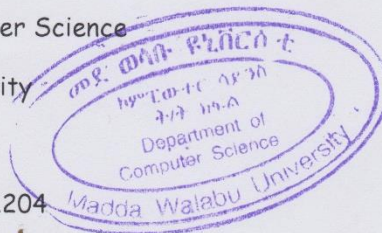 er Science
ity
204
መደ ወላቡ ዩኒቨርሲቲ
ኮምፒውተር ሳይንስ
ት/ት ክፍል
Department of
Computer Science
Madda Walabu University